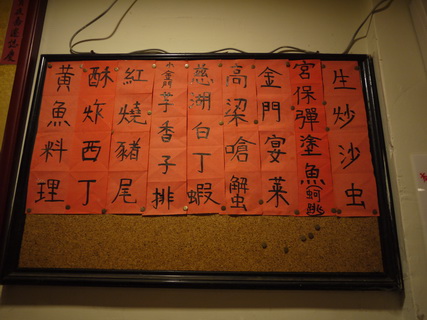 生炒沙虫
宮保彈塗魚
金門宴菜
高梁嗆蟹
慈湖白丁蝦
小金門芋香子排
紅燒豬尾
酥炸西丁
黃魚料理